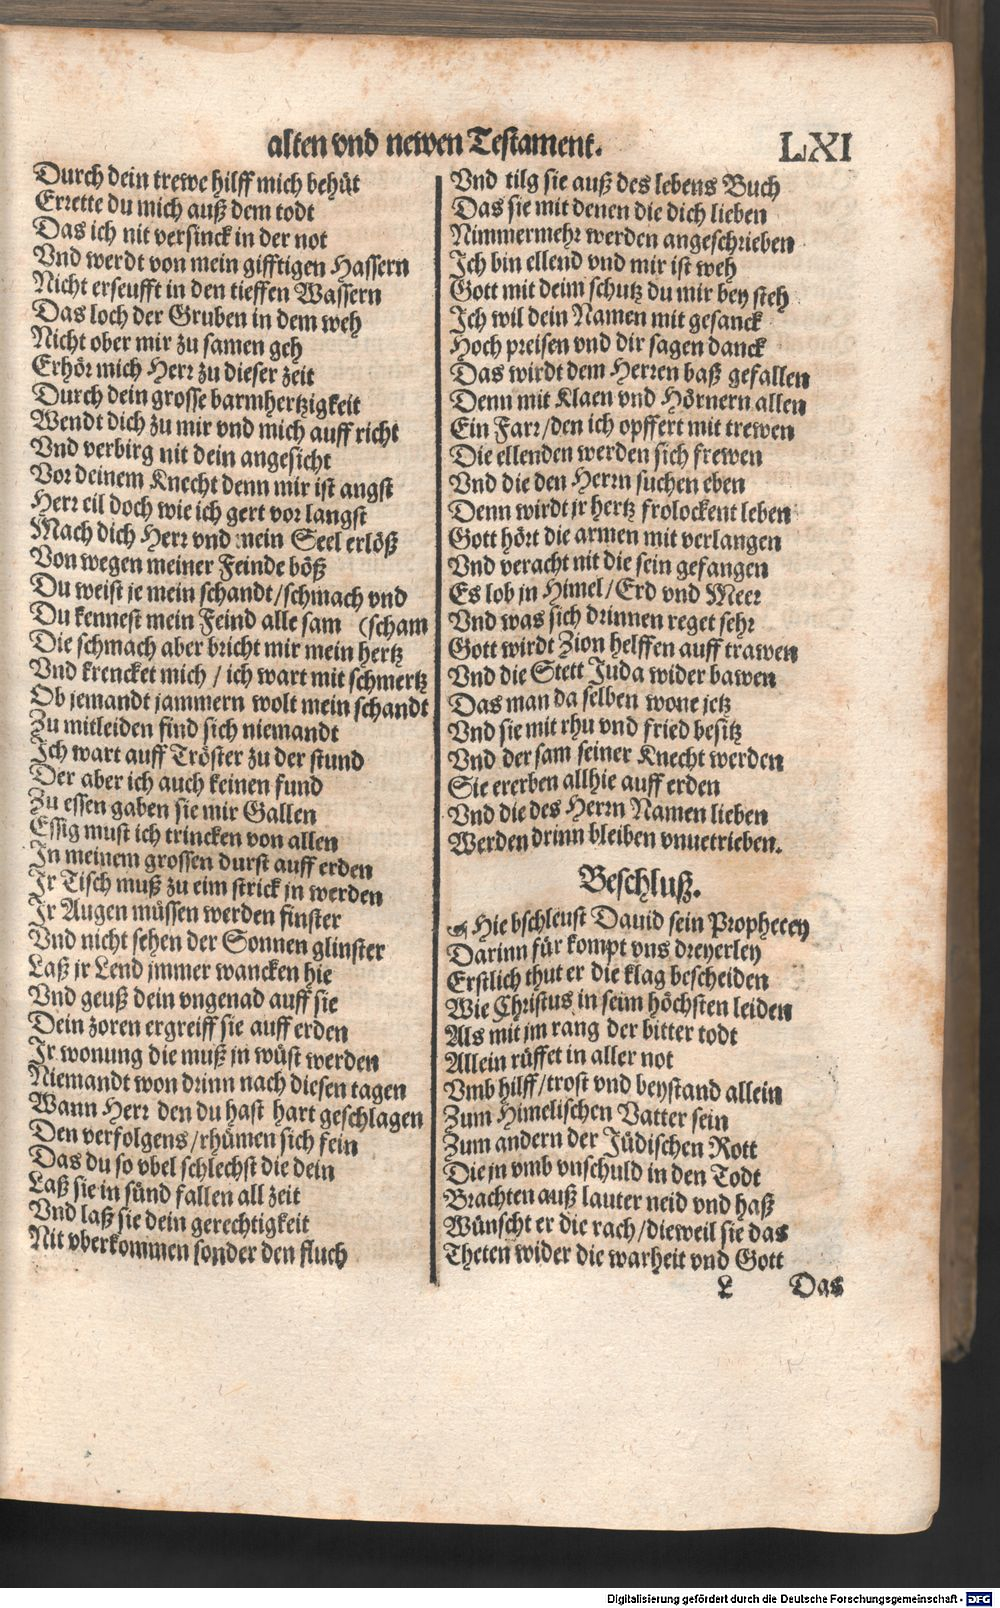 alten vnd newen Testament. LXI
Durch dein trewe hilff mich behüt
Errette du mich auß dem todt
Das ich nit versinck in der not
Vnd werdt von mein gifftigen Hassern
Nicht erseufft in den tieffen Wassern
Das loch der Gruben in dem weh
Nicht ober mir zu samen geh
Erhör mich Herr zu dieser zeit
Durch dein grosse barmhertzigkeit
Wendt dich zu mir vnd mich auff richt
Vnd verbirg nit dein angesicht
Vor deinem Knecht denn mir ist angst
Herr eil doch wie ich gert vor langst
Mach dich Herr vnd mein Seel erlöß
Von wegen meiner Feinde böß
Du weist je mein schandt/schmach vnd
Du kennest mein Feind alle sam (scham
Die schmach aber bricht mir mein hertz
Vnd krencket mich / ich wart mit schmertz
Ob jemandt jammern wolt mein schandt
Zu mitleiden find sich niemandt
Ich wart auff Tröster zu der stund
Der aber ich auch keinen fund
Zu essen gaben sie mir Gallen
Essig must ich trincken von allen
In meinem grossen durst auff erden
Jr Tisch muß zu eim strick jn werden
Jr Augen müssen werden finster
Vnd nicht sehen der Sonnen glinster
Laß jr Lend jmmer wancken hie
Vnd geuß dein vngenad auff sie
Dein zoren ergreiff sie auff erden
Jr wonung die muß jn wüst werden
Niemandt won drinn nach diesen tagen
Wann Herr den du hast hart geschlagen
Den verfolgens/rhümen sich fein
Das du so vbel schlechst die dein
Laß sie in sünd fallen all zeit
Vnd laß sie dein gerechtigkeit
Nit vberkommen sonder den fluch
Vnd tilg sie auß des lebens Buch
Das sie mit denen die dich lieben
Nimmermehr werden angeschrieben
Ich bin ellend vnd mir ist weh
Gott mit deim schutz du mir bey steh
Ich wil dein Namen mit gesanck
Hoch preisen vnd dir sagen danck
Das wirdt dem Herren baß gefallen
Denn mit Klaen vnd Hörnern allen
Ein Farr/den ich opffert mit trewen
Die ellenden werden sich frewen
Vnd die den Herrn suchen eben
Denn wirdt jr hertz frolockent leben
Gott hört die armen mit verlangen
Vnd veracht nit die sein gefangen
Es lob jn Himel/Erd vnd Meer
Vnd was sich drinnen reget sehr
Gott wirdt Zion helffen auff trawen
Vnd die Stett Juda wider bawen
Das man da selben wone jetz
Vnd sie mit rhu vnd fried besitz
Vnd der sam seiner Knecht werden
Sie ererben allhie auff erden
Vnd die des Herrn Namen lieben
Werden drinn bleiben vnuetrieben.
Beschluß.
Hie bschleust Dauid sein Prophecey
Darinn für kompt vns dreyerley
Erstlich thut er die klag bescheiden
Wie Christus in seim höchsten leiden
Als mit jm rang der bitter todt
Allein rüffet in aller not
Vmb hilff/trost vnd beystand allein
Zum Himelischen Vatter sein
Zum andern der Jüdischen Rott
Die jn vmb vnschuld in den Todt
Brachten auß lauter neid vnd haß
Wünscht er die rach/dieweil sie das
Theten wider die warheit vnd Gott
L Das
Digitalisierung gefördert durch die Deutsche Forschungsgemeinschaft - DFG